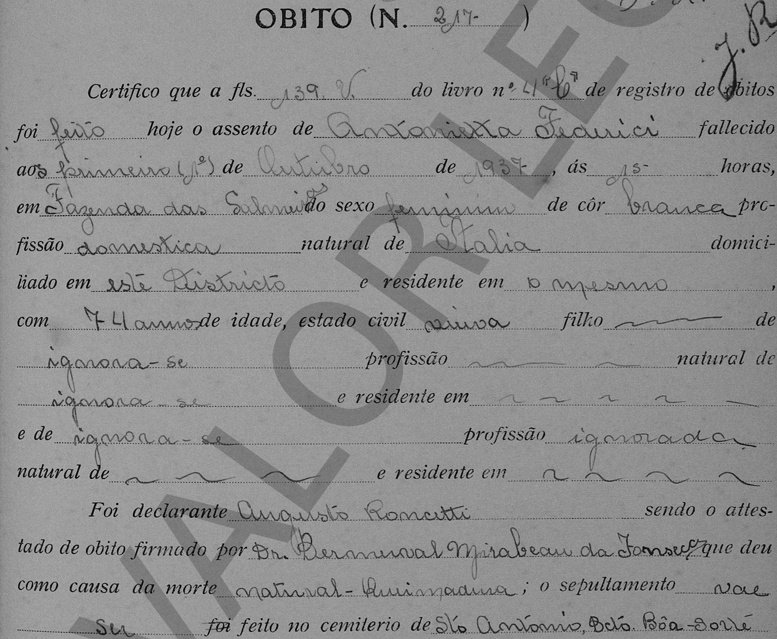 OBITO (N. 217- )
J. R
Certifico que a fls. 139 V. do livro nº 4 de registro de obitos
foi feito hoje o assento de Antonietta Federici fallecido
aos primeiro (1º) de Outubro de 1937, ás 15- horas,
em Fazenda das do sexo feminino de côr branca pro-
fissão domestica natural de Italia domici-
liado em este Districto e residente em o mesmo ,
com 74 annos de idade, estado civil viuva filho de
ignora-se profissão natural de
ignora-se e residente em
e de ignora-se profissão ignorada
natural de e residente em
Foi declarante Augusto Roncetti sendo o attes-
tado de obito firmado por Dr. Dermeval Mirabeau da Fonseca que deu
como causa da morte natural-Queimadura; o sepultamento vae
ser foi feito no cemiterio de Sto Antonio,
VALOR LEG